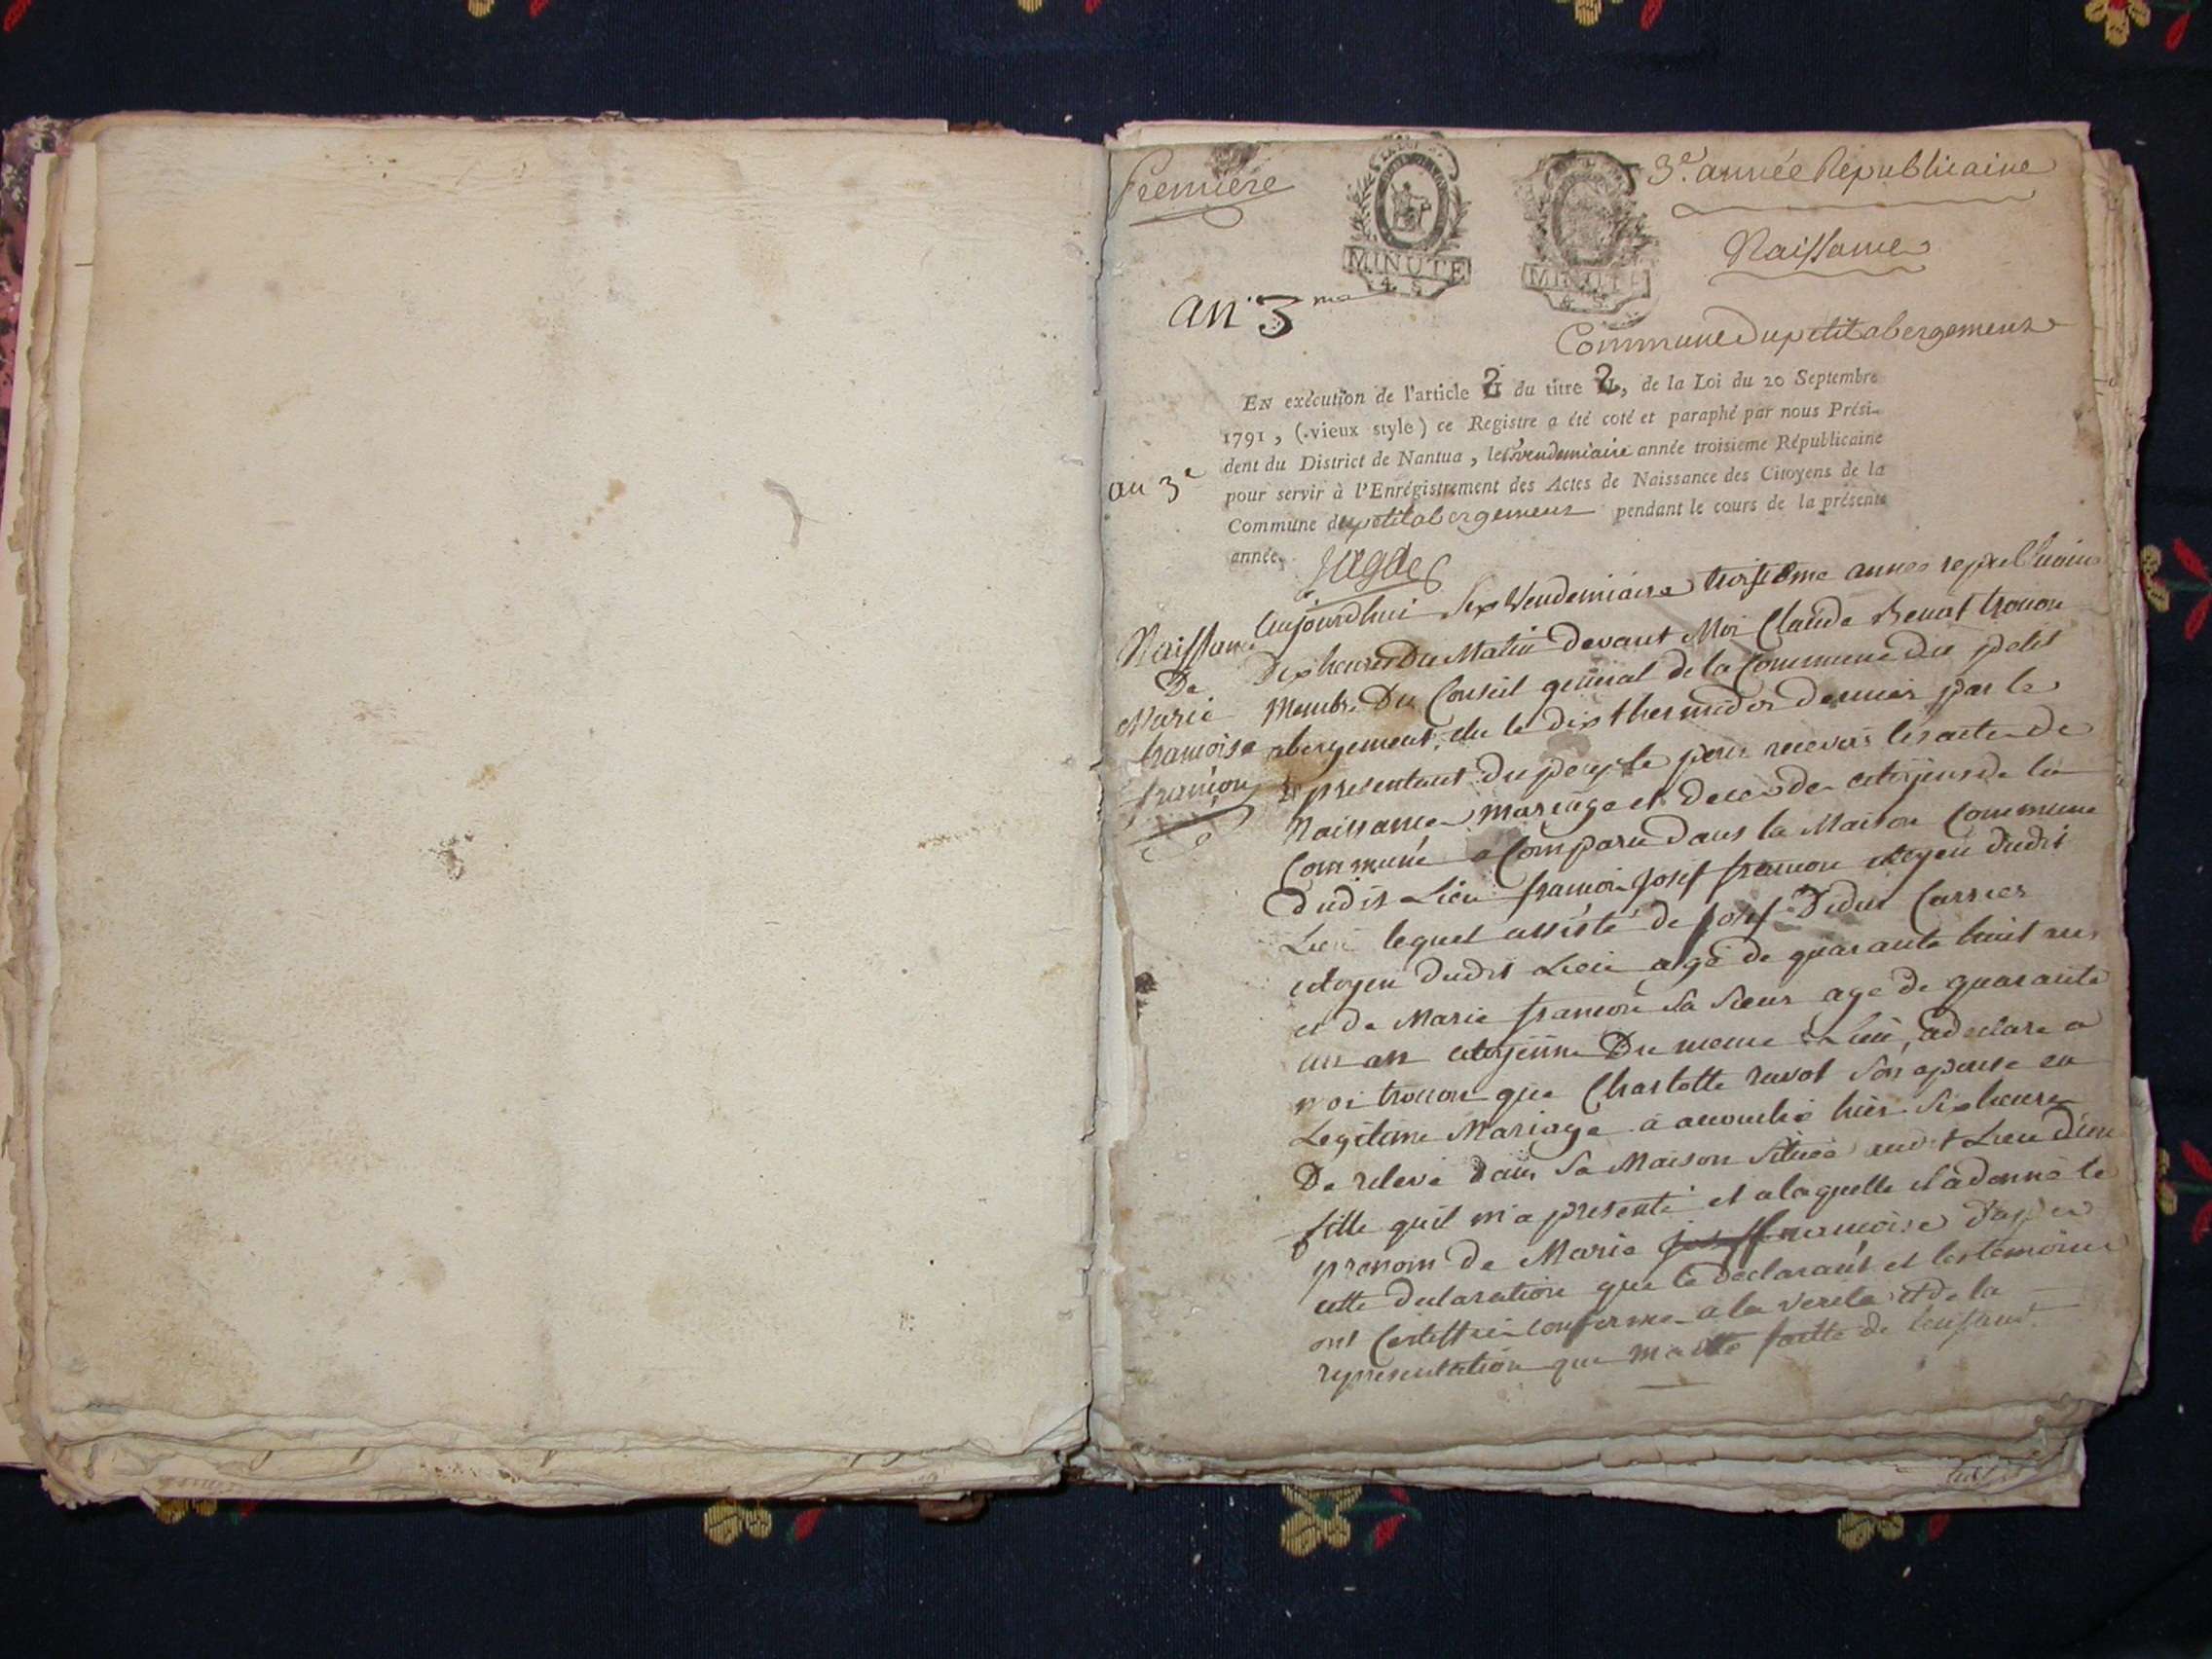 Première
3.e année Républicaine
Naissance
MINUTE
4 S
MINUTE
4 S
an 3me
Commune du petit abergement
EN exécution de l'article 2 du titre 2, de la Loi du 20 Septembre
1791, (vieux style) ce Registre a été coté et paraphé par nous Prési-
dent du District de Nantua, le vendemiaire année troisieme Républicaine
an 3e
pour servir à l'Enrégistrement des Actes de Naissance des Citoyens de la
Commune du petit abergement pendant le cours de la présente
année.
Naissance
De
Marie
françoise
françon
Aujourdhui Six Vendemiaire troisieme année republicaine
Dix heures Du Matin devant Moi Claude Benoit
Membre Du Conseil general de la Commune du petit
abergement, elu le dix thermidor dernier par le
representant du peuple pour recevoir les actes de
Naissance mariage et deces des citoyens de la
Commune a Comparu dans la Maison Commune
dudit Lieu françois Josef françon citoyen dudit
Lieu lequel assisté de Josef Carrier
citoyen dudit Lieu agé de quarante huit ans
et de Marie françon Sa Sœur age de quarante
un an citoyenne Du meme Lieu, a declare a
moi que Charlotte ravot Son epouse en
Legitime Mariage a accouché hier Six heures
De relevé dans Sa Maison Située audit Lieu d'une
fille quil m'a presenté et alaquelle il a donné le
prenom de Marie françoise d'apres
cette declaration que le declarant et les temoins
ont Certiffié conforme a la verité et de la
representation que m'a été faitte de lenfant